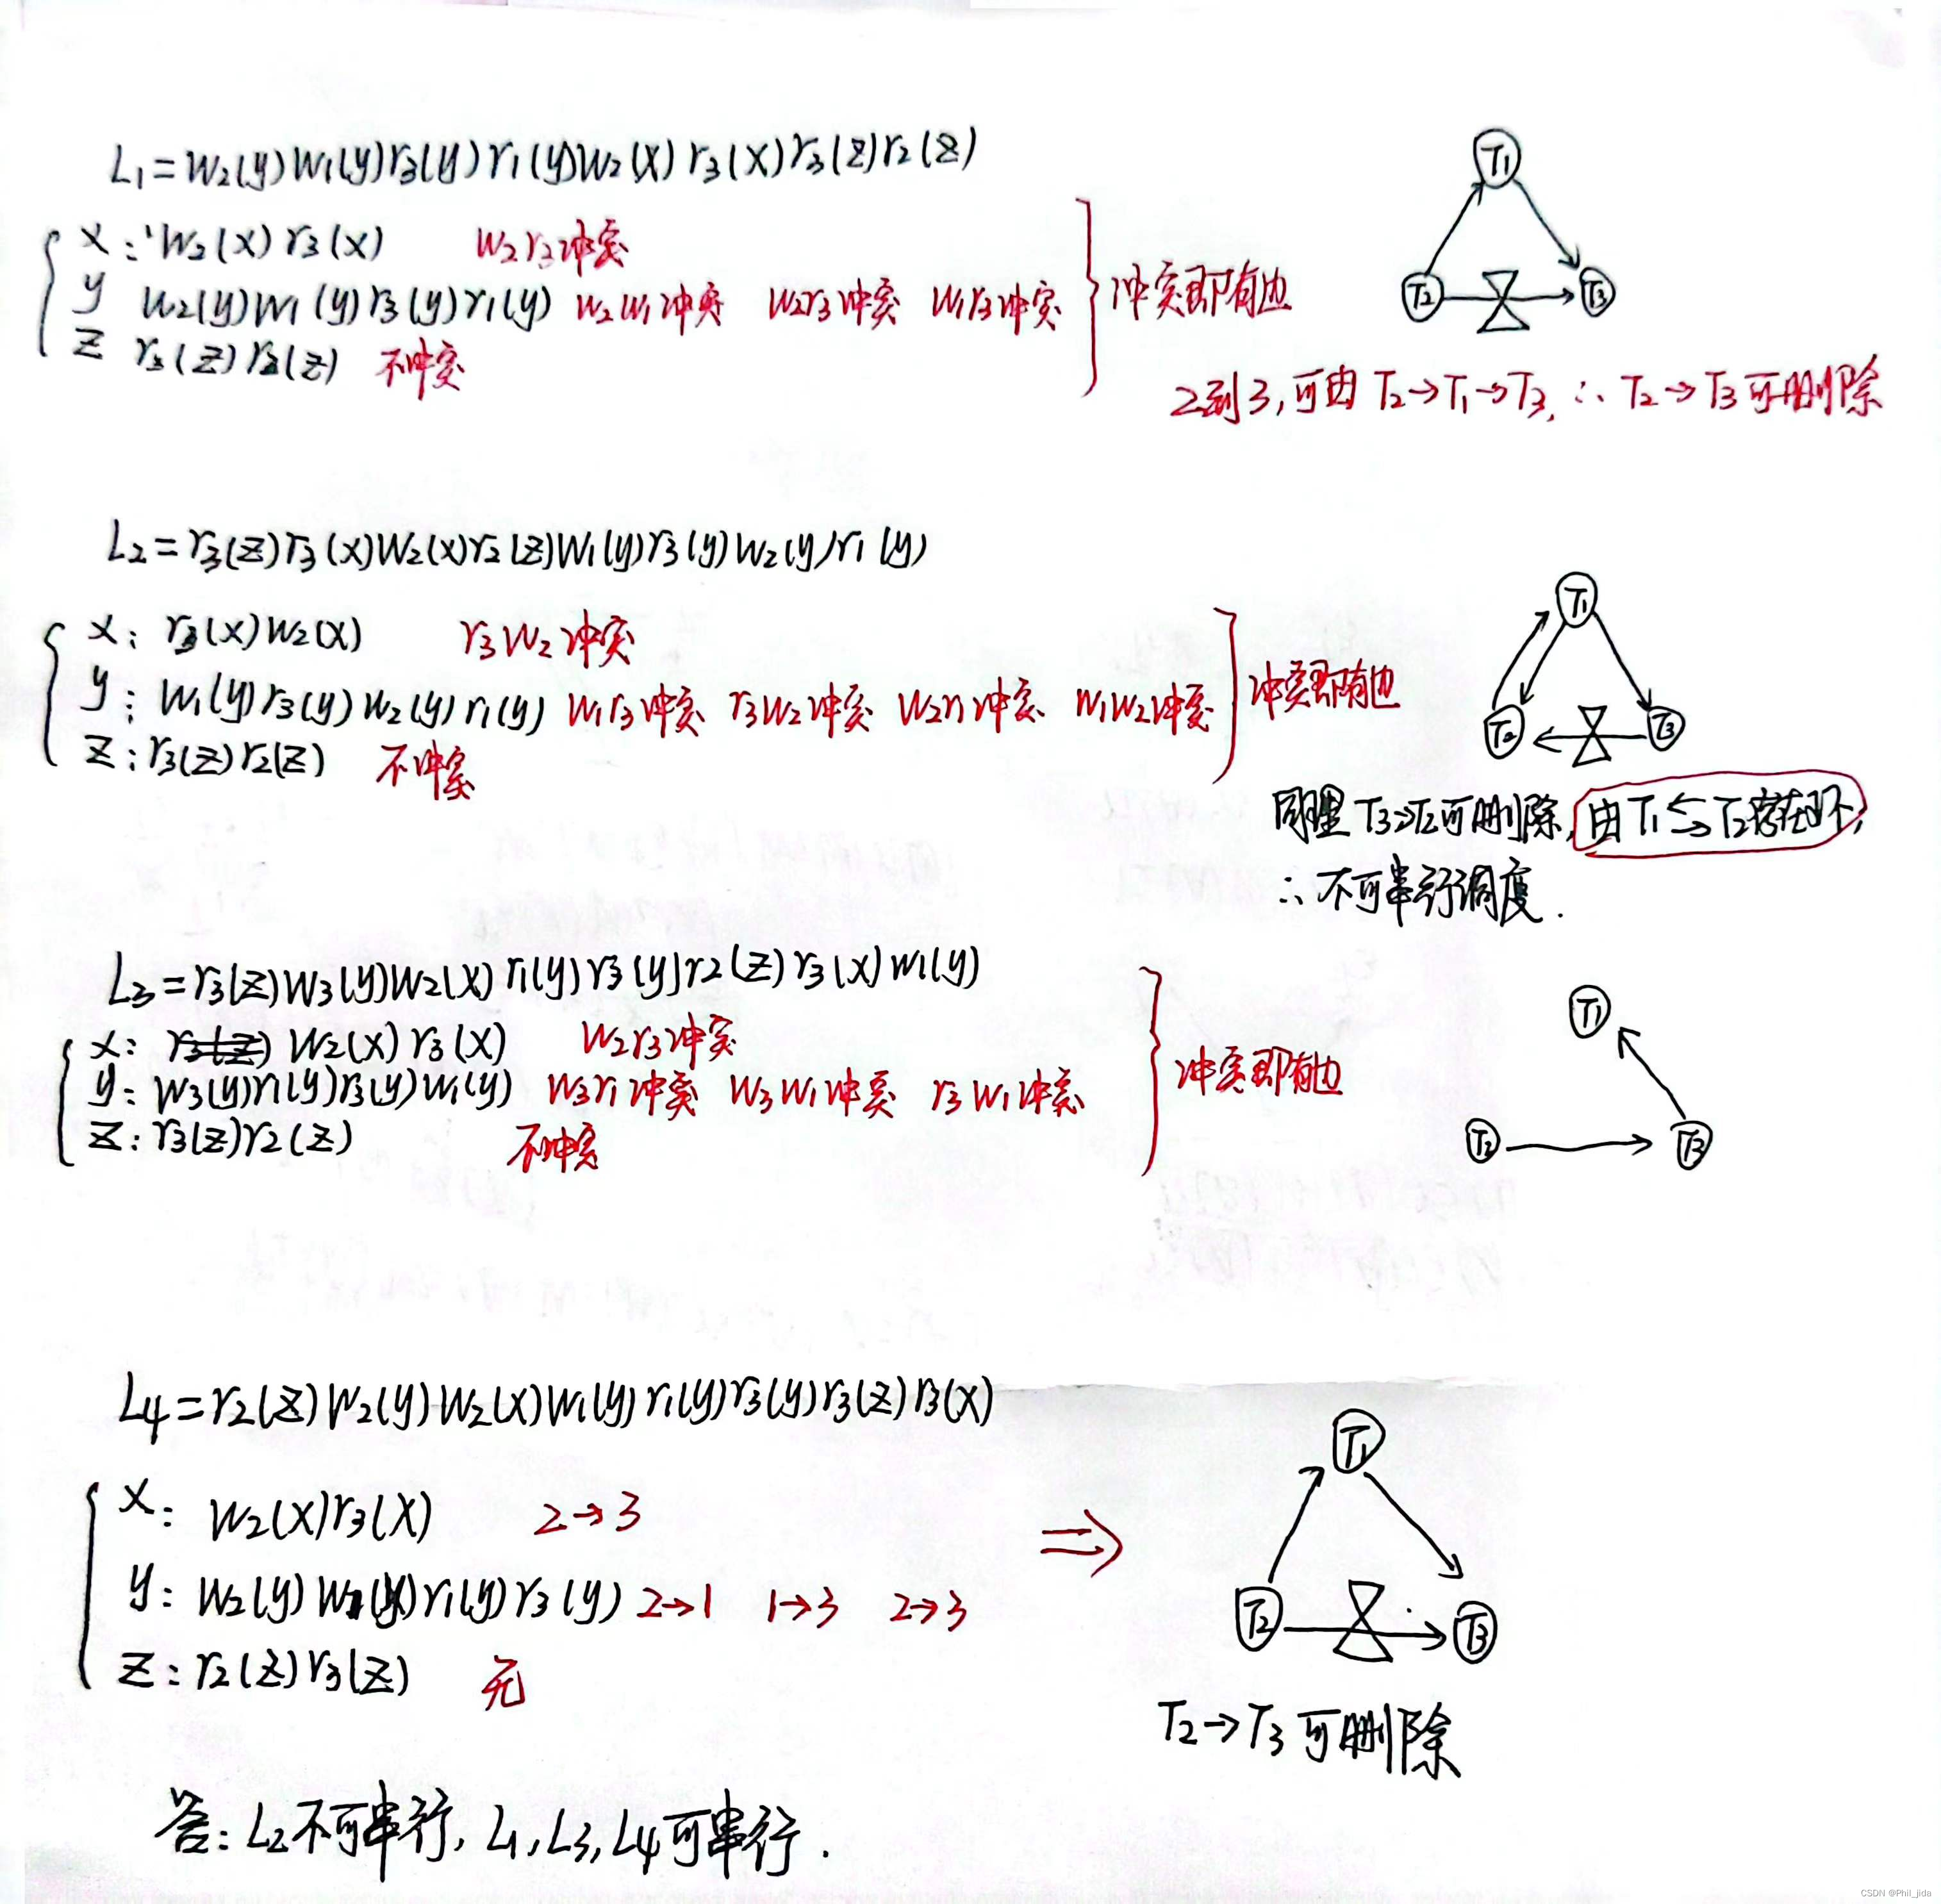 L1=W2(y)W1(y)r3(y)r1(y)W2(x)r3(x)r3(z)r2(z)
T1
T2
T3
x: W2(x)r3(x) W2r3冲突
y W2(y)W1(y)r3(y)r1(y) W2W1冲突 W2r3冲突 W1r3冲突
z r3(z)r2(z) 不冲突
冲突即有边
2到3,可由T2→T1→T3,∴T2→T3可删除
L2=r3(z)r3(x)W2(x)r2(z)W1(y)r3(y)W2(y)r1(y)
T1
T2
T3
x: r3(x)W2(x) r3W2冲突
y: W1(y)r3(y)W2(y)r1(y) W1r3冲突 r3W2冲突 W2r1冲突 W1W2冲突
z: r3(z)r2(z) 不冲突
冲突即有边
同理T3→T2可删除,由T1⇆T2存在环,
∴不可串行调度.
L3=r3(z)W3(y)W2(x)r1(y)r3(y)r2(z)r3(x)W1(y)
T1
T2
T3
x: r3(z) W2(x)r3(x) W2r3冲突
y: W3(y)r1(y)r3(y)W1(y) W3r1冲突 W3W1冲突 r3W1冲突
z: r3(z)r2(z) 不冲突
冲突即有边
L4=r2(z)W2(y)W2(x)W1(y)r1(y)r3(y)r3(z)r3(x)
T1
T2
T3
x: W2(x)r3(x) 2→3
y: W2(y)W1(y)r1(y)r3(y) 2→1 1→3 2→3
z: r2(z)r3(z) 无
⇒
T2→T3可删除
答: L2不可串行, L1, L3, L4可串行.
CSDN @Phil_jida